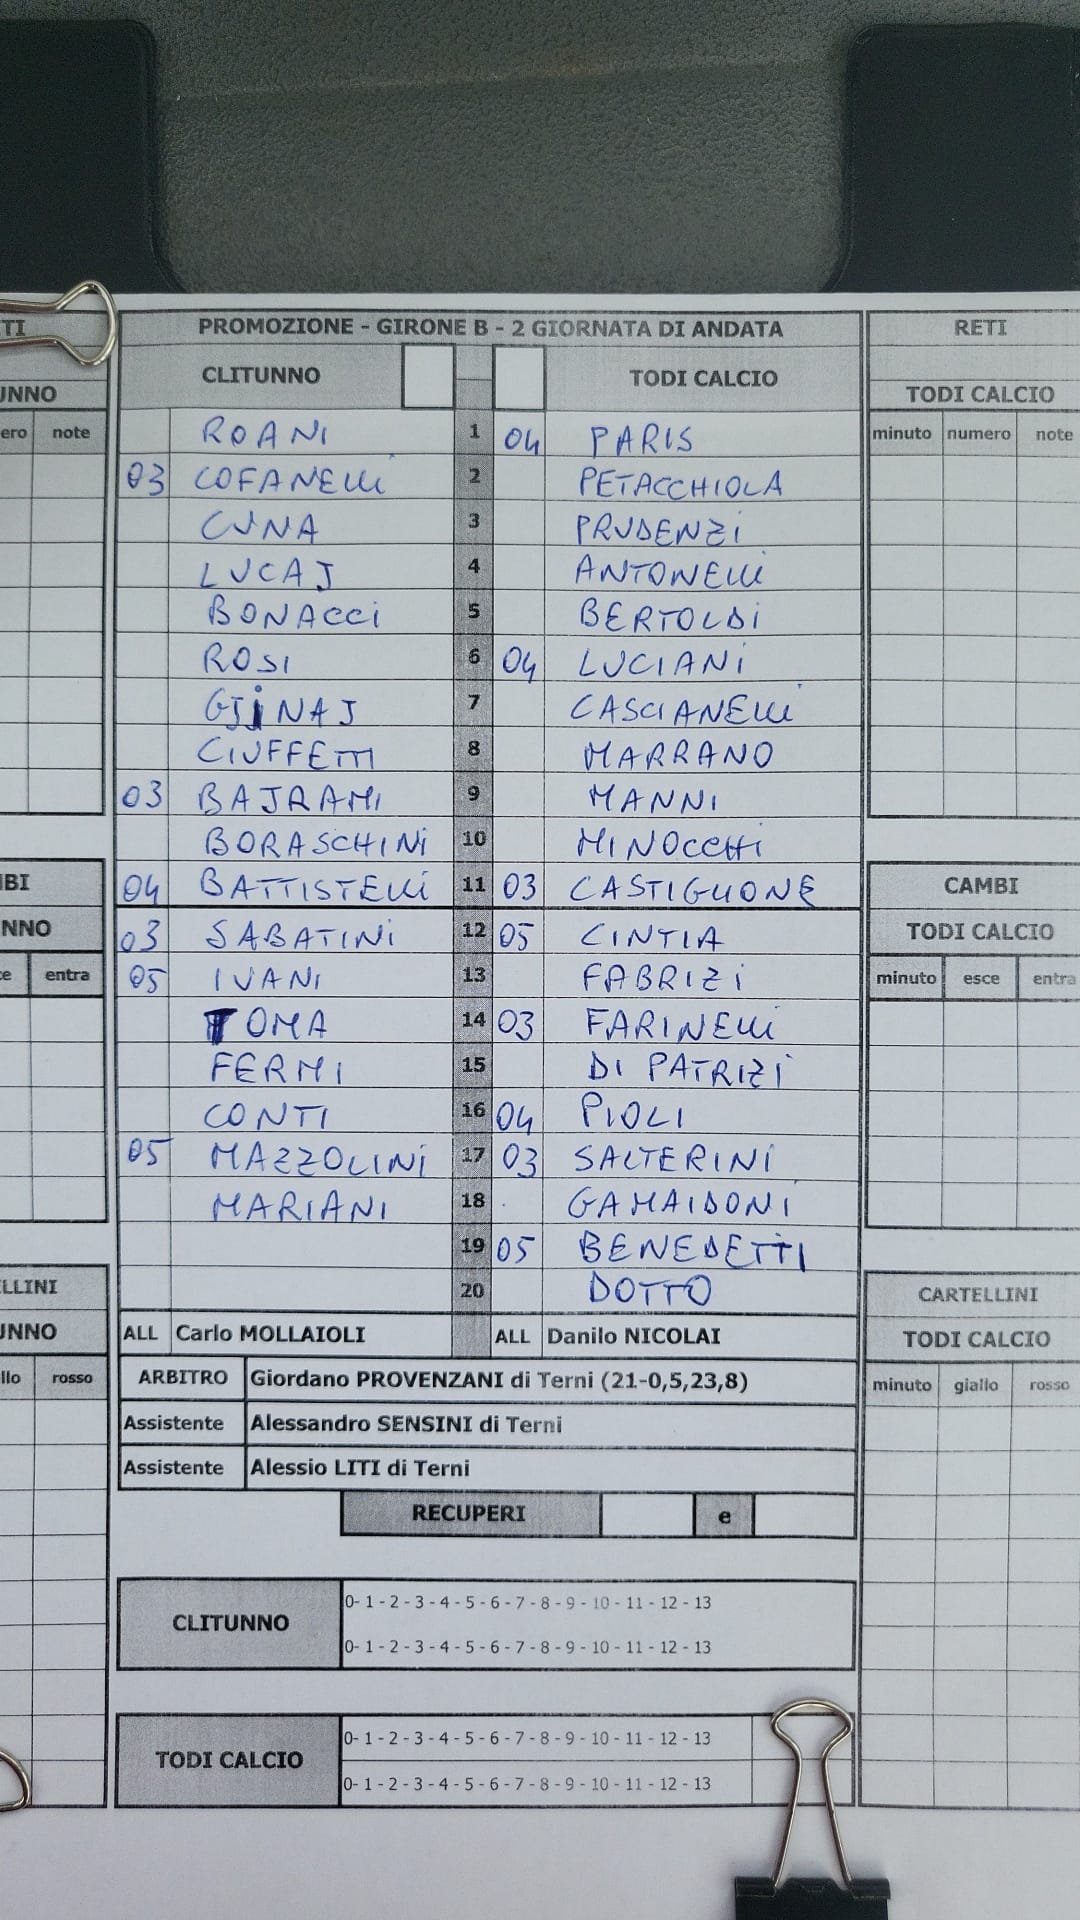 PROMOZIONE - GIRONE B - 2 GIORNATA DI ANDATA
CLITUNNO TODI CALCIO
ROANI 1 04 PARIS
03 COFANELLI 2 PETACCHIOLA
CUNA 3 PRUDENZI
LUCAJ 4 ANTONELLI
BONACCI 5 BERTOLDI
ROSI 6 04 LUCIANI
GJINAJ 7 CASCIANELLI
CIUFFETTI 8 MARRANO
03 BAJRAMI 9 MANNI
BORASCHINI 10 MINOCCHI
04 BATTISTELLI 11 03 CASTIGLIONE
03 SABATINI 12 05 CINTIA
05 IVANI 13 FABRIZI
TOMA 14 03 FARINELLI
FERMI 15 DI PATRIZI
CONTI 16 04 PIOLI
05 MAZZOLINI 17 03 SALTERINI
MARIANI 18 GAMAIDONI
19 05 BENEDETTI
20 DOTTO
ALL Carlo MOLLAIOLI ALL Danilo NICOLAI
ARBITRO Giordano PROVENZANI di Terni (21-0,5,23,8)
Assistente Alessandro SENSINI di Terni
Assistente Alessio LITI di Terni
RECUPERI e
CLITUNNO
0- 1 - 2 - 3 - 4 - 5 - 6 - 7 - 8 - 9 - 10 - 11 - 12 - 13
0- 1 - 2 - 3 - 4 - 5 - 6 - 7 - 8 - 9 - 10 - 11 - 12 - 13
TODI CALCIO
0- 1 - 2 - 3 - 4 - 5 - 6 - 7 - 8 - 9 - 10 - 11 - 12 - 13
0- 1 - 2 - 3 - 4 - 5 - 6 - 7 - 8 - 9 - 10 - 11 - 12 - 13
TI
UNNO
ero note
BI
NNO
e entra
LLINI
UNNO
llo rosso
RETI
TODI CALCIO
minuto numero note
CAMBI
TODI CALCIO
minuto esce entra
CARTELLINI
TODI CALCIO
minuto giallo rosso